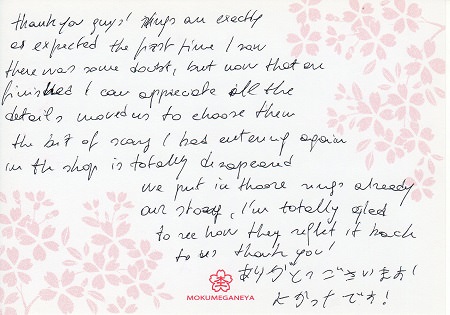 thank you guys! rings are exactly
as expected the first time I saw
there was some doubt, but now that are
finished I can appreciate all the
details moved us to choose them
the bit of scary I had entering again
in the shop is totally disapeared
we put in those rings already
our story, I'm totally glad
to see how they reflet it back
to us thank you!
ありがとうございます!
よかったです!
MOKUMEGANEYA